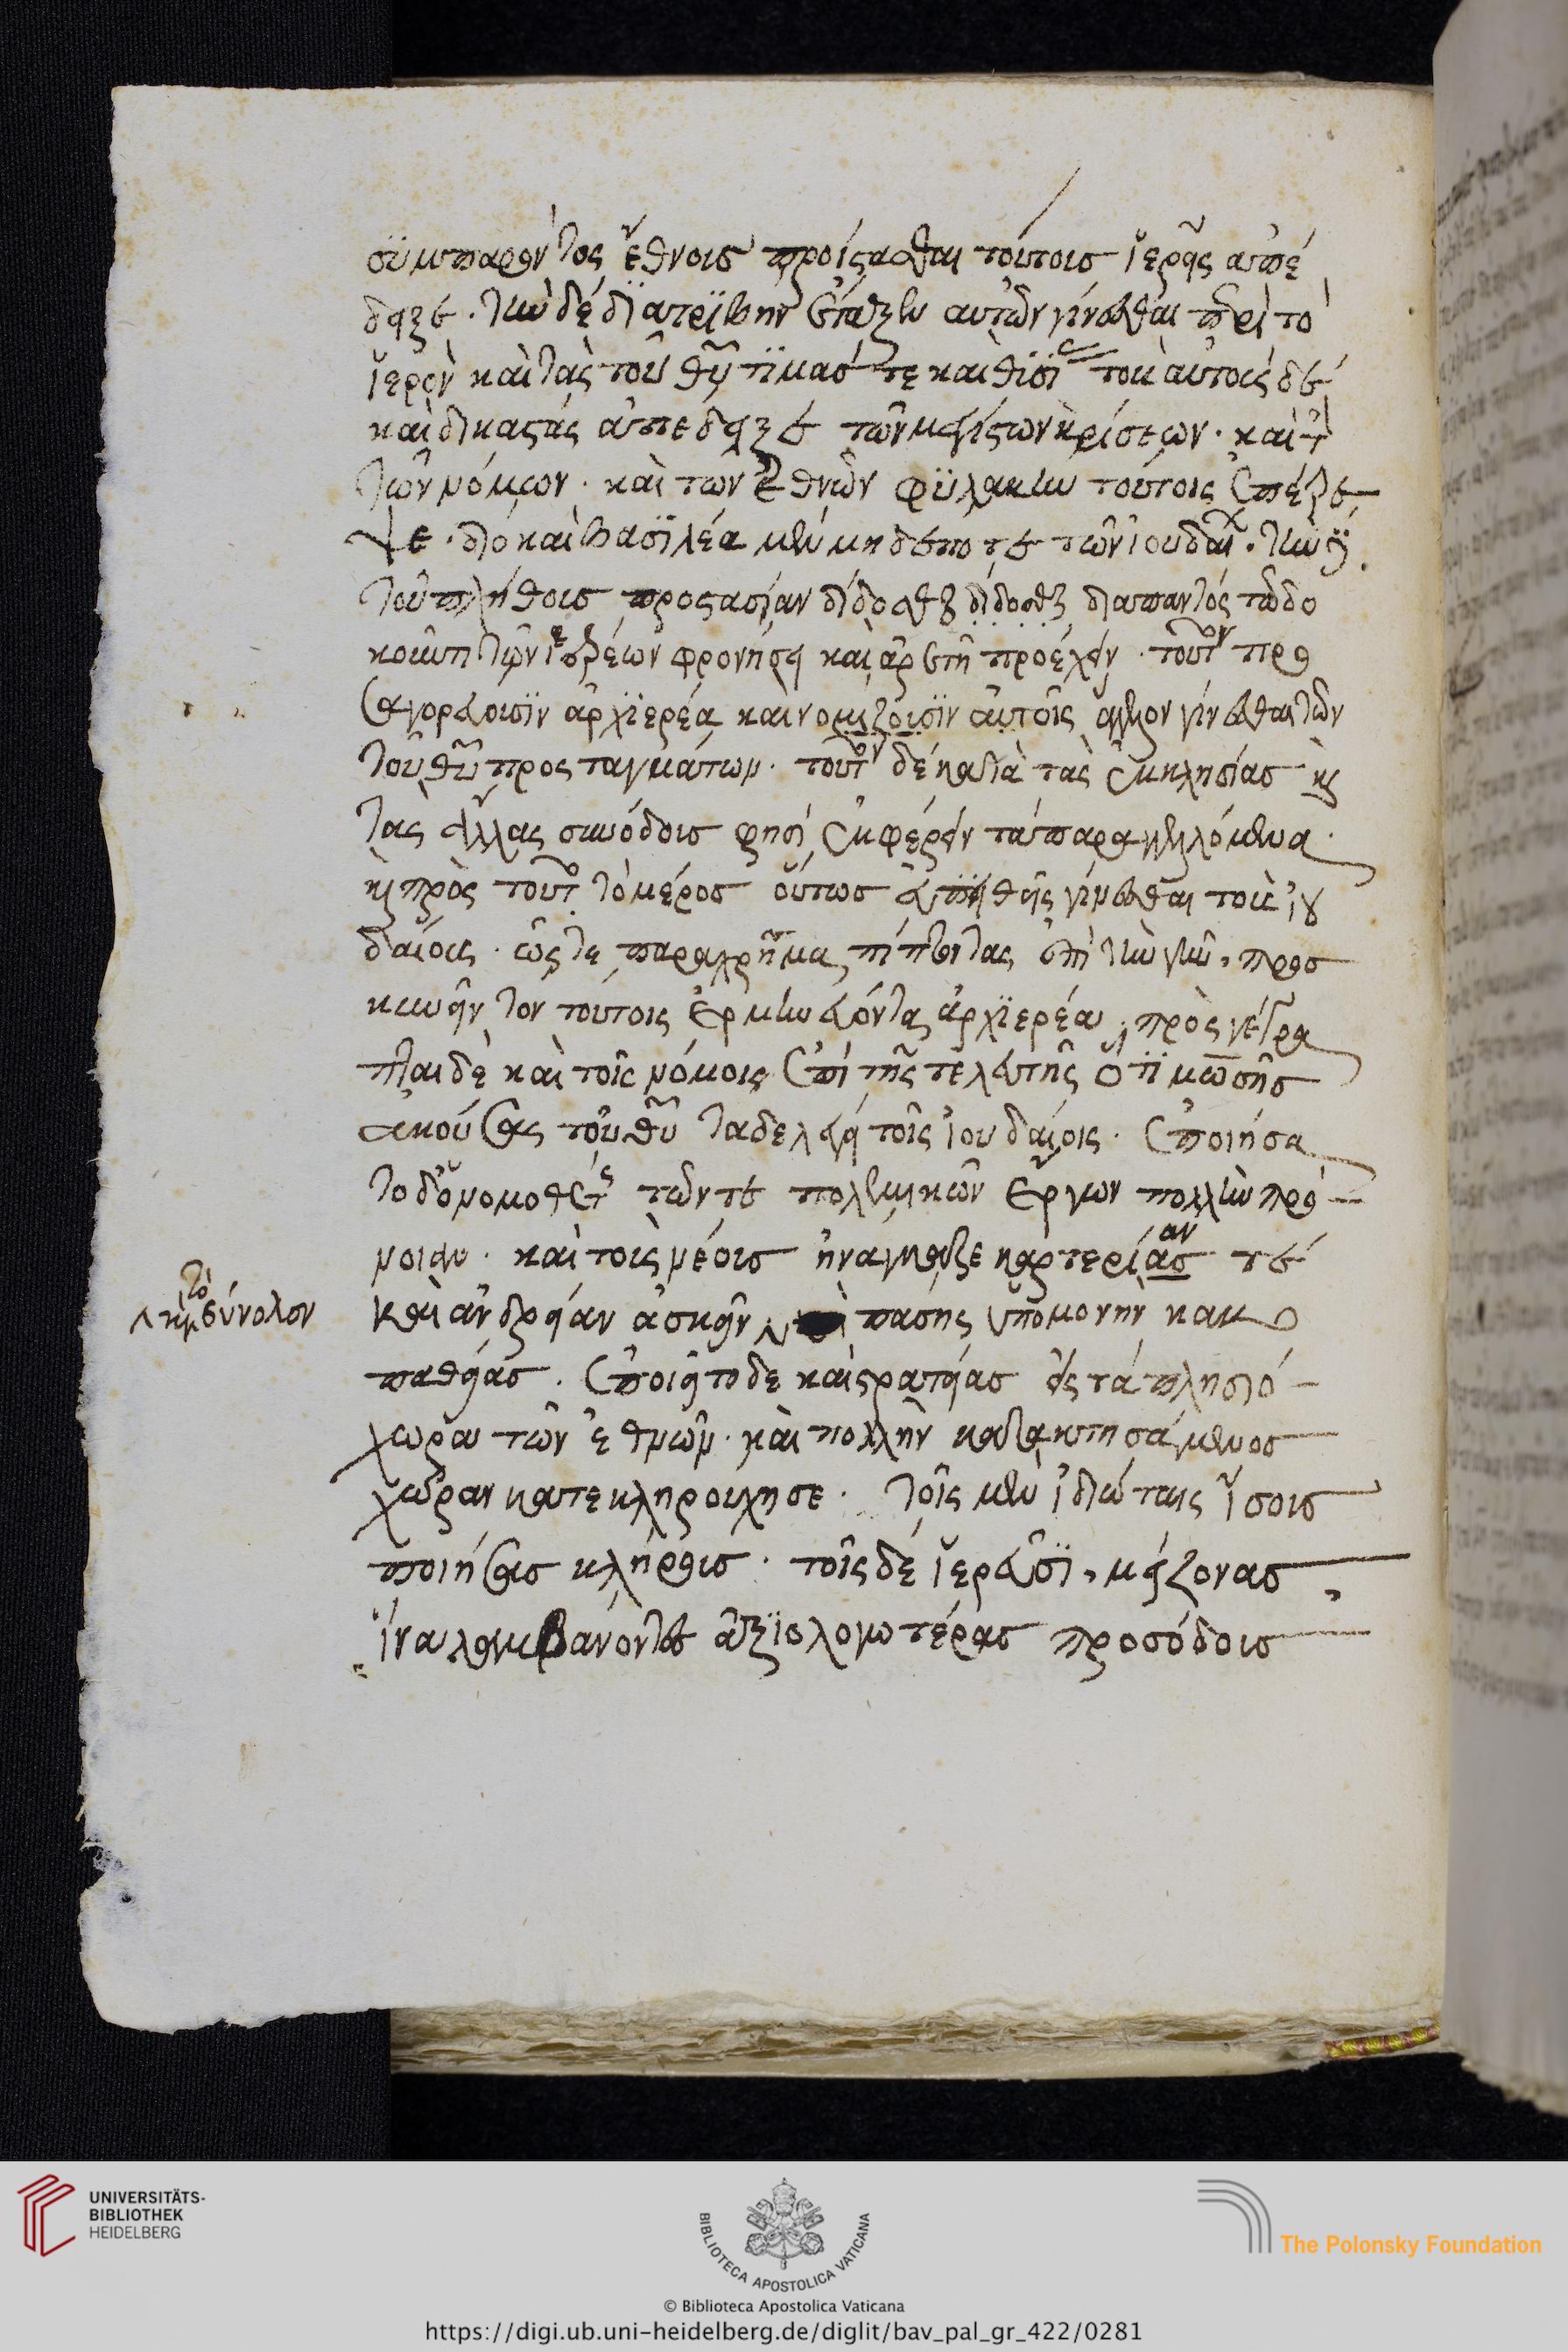 σύμπαντος ἔθνους προΐστασθαι τούτους ἱερεῖς ἀπέ
δειξε. τὴν δὲ διατριβὴν ἔταξεν αὐτῶν γίνεσθαι περὶ τὸ
ἱερὸν καὶ τὰς τοῦ θυ τιμάς τε καὶ θυσί τοὺς αὐτοὺς δὲ
καὶ δικαστὰς ἀπέδειξε τῶν μεγίστων κρίσεων. καὶ τ
τῶν νόμων. καὶ τῶν ἐθνῶν φυλακὴν τούτοις ἐπέτρε
ψε. διὸ καὶ βασιλέα μὲν μηδέποτε τῶν ἰουδαι. τὴν
τοῦ πλήθους προστασίαν δίδοσθαι δίδοσθαι διαπαντός τῶ δο
κοῦντι τῶν ἱερέων φρονήσει καὶ ἀρετῇ προέχειν. τοῦτον προ
σαγορεύουσιν ἀρχιερέα καὶ νομίζουσιν αὐτοῖς ἄγγελον γίνεσθαι τῶν
τοῦ θυ προσταγμάτων. τοῦτον δὲ κατὰ τὰς ἐκκλησίας κ
τὰς ἄλλας συνόδους φησὶ ἐκφέρειν τὰ παραγγελλόμενα.
κ πρὸς τοῦτ τὸ μέρος οὕτως εὐπειθεῖς γίνεσθαι τοὺς ἰου
δαίους. ὥστε παραχρῆμα πίπτοντας ἐπὶ τὴν γῆν, προσ
κυνεῖν τὸν τούτοις ἑρμηνεύοντα ἀρχιερέα, προσγέγρα
πται δὲ καὶ τοῖς νόμοις ἐπὶ τῆς τελευτῆς ὅτι μωσῆς
ἀκούσας τοῦ θυ τάδε λέγει τοῖς ἰουδαίοις. ἐποιήσα
το δ' ὁ νομοθέτης τῶν τε πολεμικῶν ἔργων πολλὴν πρό
νοιαν. καὶ τοὺς νέους ἠνάγκαζε καρτερίας αν τε
καὶ ἀνδρείαν ἀσκεῖν πάσης ὑπομονὴν κακο
παθείας. ἐποιεῖτο δὲ καὶ στρατείας εἰς τὰ πλησιό
χωρα τῶν ἐθνῶν. καὶ πολλὴν κατακτησάμενος
χώραν κατεκληρούχησε. τοῖς μὲν ἰδιώταις ἴσους
ποιήσας κλήρους. τοῖς δὲ ἱερεῦσι, μείζονας,
ἵνα λαμβάνοντες ἀξιολογωτέρας προσόδους
κ τὸ σύνολον
UNIVERSITÄTS-
BIBLIOTHEK
HEIDELBERG
BIBLIOTECA APOSTOLICA VATICANA
The Polonsky Foundation
© Biblioteca Apostolica Vaticana
https://digi.ub.uni-heidelberg.de/diglit/bav_pal_gr_422/0281